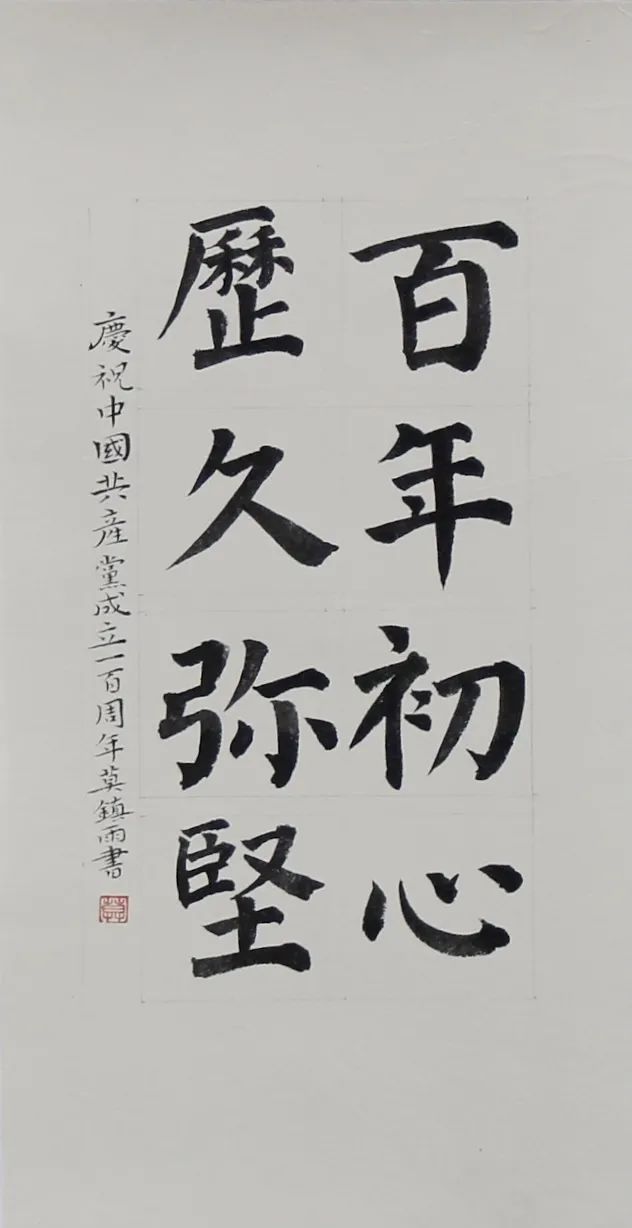 百年初心
歷久弥堅
慶祝中國共産黨成立一百周年莫鎮雨書